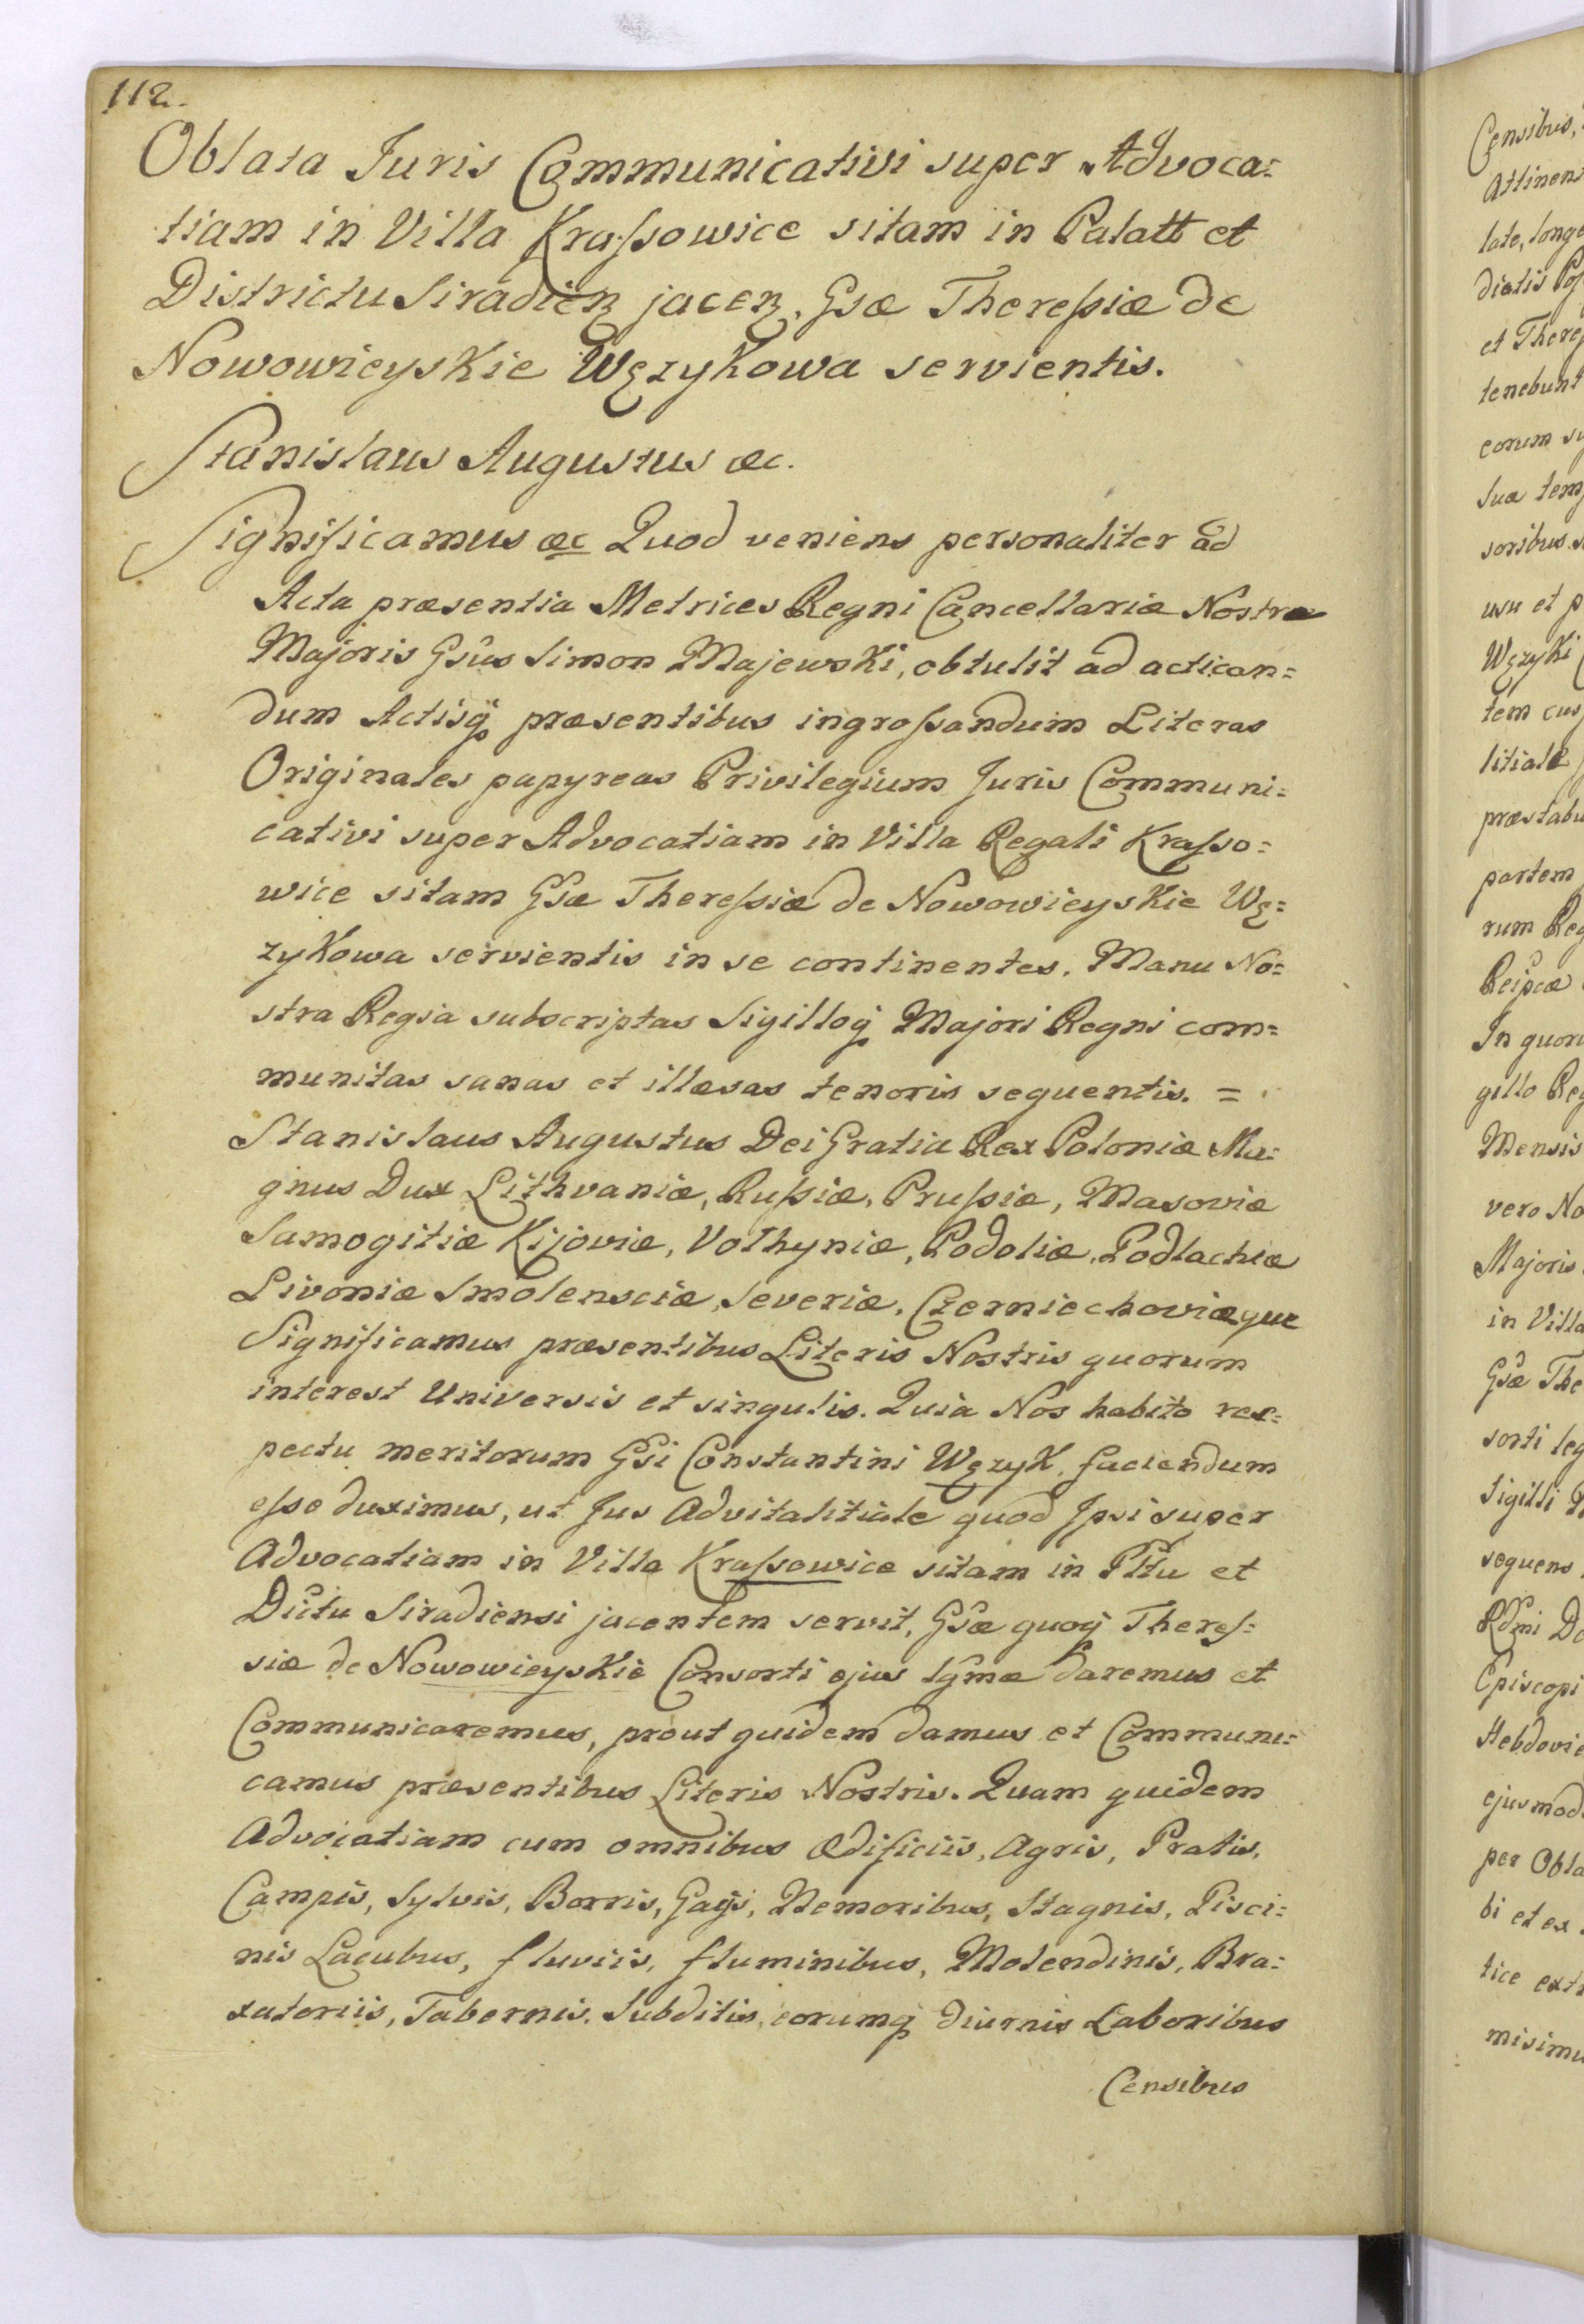 112.
Oblata Juris Communicativi super Advoca=
tiam in Villa Kraſsowice sitam in Palatt et
Districtu Siradien jacen. Gsæ Thereſsiæ de
Nowowieyskie Wężykowa servientis.
Stanislaus Augustus &c.
Significamus &c Quod veniens personaliter ad
Acta præsentia Metrices Regni Cancellariæ Nostræ
Majoris Gsus Simon Majewski, obtulit ad actican=
dum Actisq præsentibus ingroſsandum Literas
Originales papyreas Privilegium Juris Communi=
cativi super Advocatiam in Villa Regali Kraſso=
wice sitam Gsæ Thereſsiæ de Nowowieyskie Wę=
zykowa servientis in se continentes, Manu No=
stra Regia subscriptas Sigilloq Majori Regni com=
munitas sanas et illæsas tenoris sequentis. =
Stanislaus Augustus Dei Gratia Rex Poloniæ Ma=
gnus Dux Lithvaniæ, Ruſsiæ, Pruſsiæ, Masoviæ
Samogitiæ Kijoviæ, Volhyniæ, Podoliæ, Podlachiæ
Livoniæ Smolensciæ, Severiæ, Czerniechoviæque
Significamus præsentibus Literis Nostris quorum
interest Universis et singulis. Quia Nos habito res=
pectu meritorum Gsi Constantini Wężyk, faciendum
eſse duximus, ut Jus Advitalitiale quod Ipsi super
Advocatiam in Villa Kraſsowice sitam in Plttu et
Dictu Siradiensi jacentem servit, Gsæ quoq Thereſ=
siæ de Nowowieyskie Consorti ejus lgmæ daremus et
Communicaremus, prout quidem damus et Communi=
camus præsentibus Literis Nostris. Quam quidem
Advocatiam cum omnibus Ædificiis, Agris, Pratis,
Campis, Sylvis, Borris, Gays, Nemoribus, Stagnis, Pisci=
nis Lacubus, fluviis, fluminibus, Molendinis, Bra=
xatoriis, Tabernis, Subditis, eorumq diurnis Laboribus
Censibus
Censibus,
Attinen
late, longe
diatis
et Theres
tenebunt
eorum
suæ tem
soribus
usu et p
Wężyki
tem
litiale
præstabu
partem
rum Reg
Reipcæ
In quoru
gillo Reg
Mensis
vero No
Majoris
in Villa
Gsæ The
sorti leg
Sigilli
sequens
Rdmi Do
Episcopi
Hebdovie
ejusmod
per Obla
bi et ex
tice extr
misimu